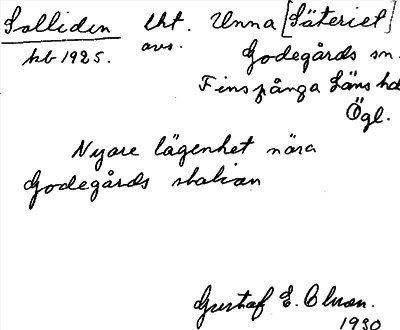 Solliden Uht. Unna [Säteriet]
kb 1925. avs. Godegårds sn.
Finspånga Läns hd
Ögl.
Nyare lägenhet nära
Godegårds station
Gustaf E. Olson.
1930